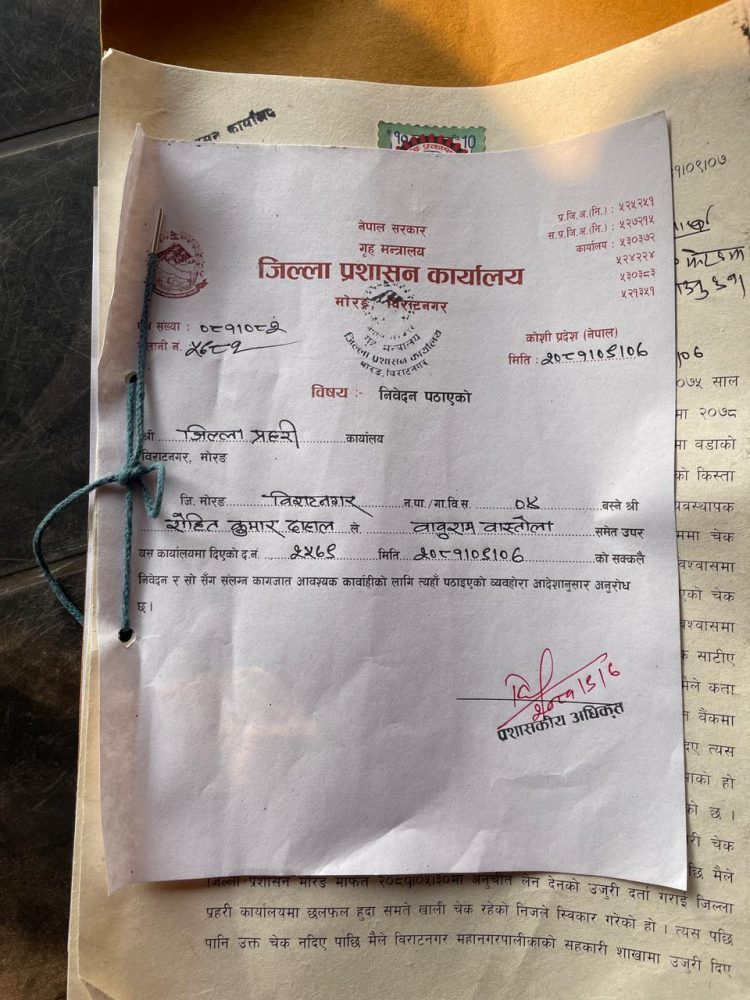 १० 10
नेपाल सरकार
गृह मन्त्रालय
जिल्ला प्रशासन कार्यालय
मोरङ, विराटनगर
प्र.जि.अ.(नि.) : ५२५२५१
स.प्र.जि.अ.(नि.) : ५२७२१५
कार्यालय : ५३०३७२
५२४२२४
५३०३८३
५२१३५१
गृह मन्त्रालय
जिल्ला प्रशासन कार्यालय
मोरङ, विराटनगर
संख्या : ०८१।०८२
कोशी प्रदेश (नेपाल)
मिति : २०८१।०९।०६
विषय :- निवेदन पठाएको
श्री जिल्ला प्रहरी कार्यालय
विराटनगर, मोरङ
जि. मोरङ विराटनगर न.पा./गा.वि.स. ०४ बस्ने श्री
रोहित कुमार दाहाल ले बाबुराम वास्तोला समेत उपर
यस कार्यालयमा दिएको द.नं. २५६९ मिति २०८१।०९।०६ को सक्कलै
निवेदन र सो सँग संलग्न कागजात आवश्यक कार्वाहीको लागि त्यहाँ पठाइएको व्यवहोरा आदेशानुसार अनुरोध
छ।
२०८१/९/६
प्रशासकीय अधिकृत
०७५ साल
मा २०७८
मा बडाको
को किस्ता
यवस्थापक
ममा चेक
वश्वासमा
एको चेक
वश्वासमा
साटीए
मैले कता
बैकमा
दिए त्यस
माको हो
को छ ।
री चेक
छि मैले
जिल्ला प्रशासन मोरङ मार्फत २०८१।०५।३०मा अनुचीत लेन देनको उजुरी दर्ता गराई जिल्ला
प्रहरी कार्यालयमा छलफल हुदा समते खाली चेक रहेको निजले स्विकार गरेको हो । त्यस पछि
पानि उक्त चेक नदिए पाछि मैले विराटनगर महानगरपालीकाको सहकारी शाखामा उजुरी दिए